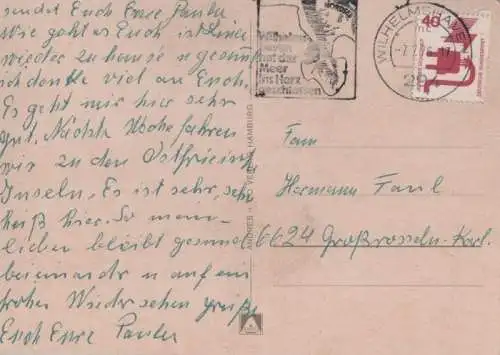 sendet Euch Eure Paula
Wie geht es Euch ist Irene
wieder zu hause u gesund
ich denke viel an Euch.
Es geht mir hier sehr
gut. Nächste Woche fahren
wir zu den Ostfriesisch
Inseln. Es ist sehr, sehr
heiß hier. So mein
lieber bleibt gesund
beieinander u auf ein
frohes Wiedersehen grüßt
Euch Eure Paula
Wilhelms-
haven
hat das
Meer
ins Herz
geschlossen
WILHELMSHAVEN
29
40
DEUTSCHE BUNDESPOST
HAMBURG
Fam
Hermann Faul
6624 Großrosseln-Karl.